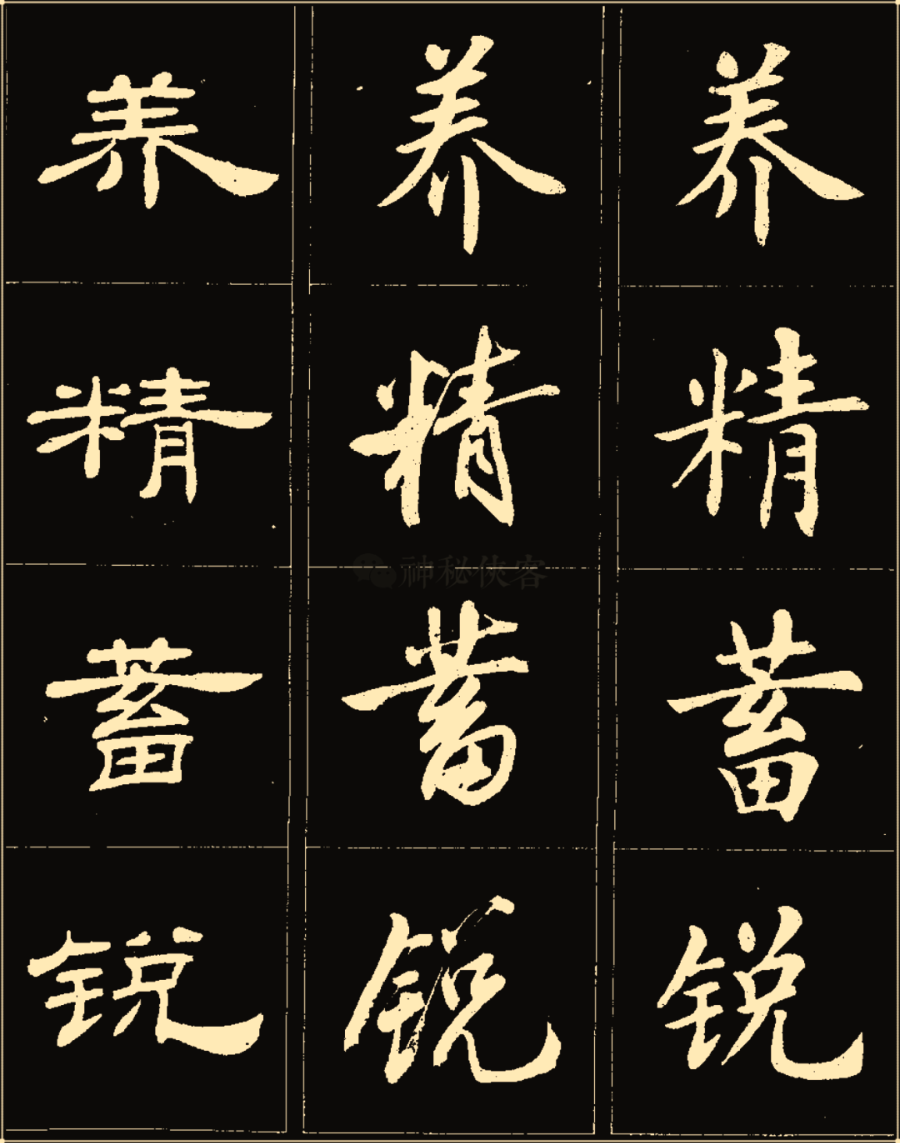 养 养 养
精 精 精
蓄 蓄 蓄
锐 锐 锐
神秘侠客